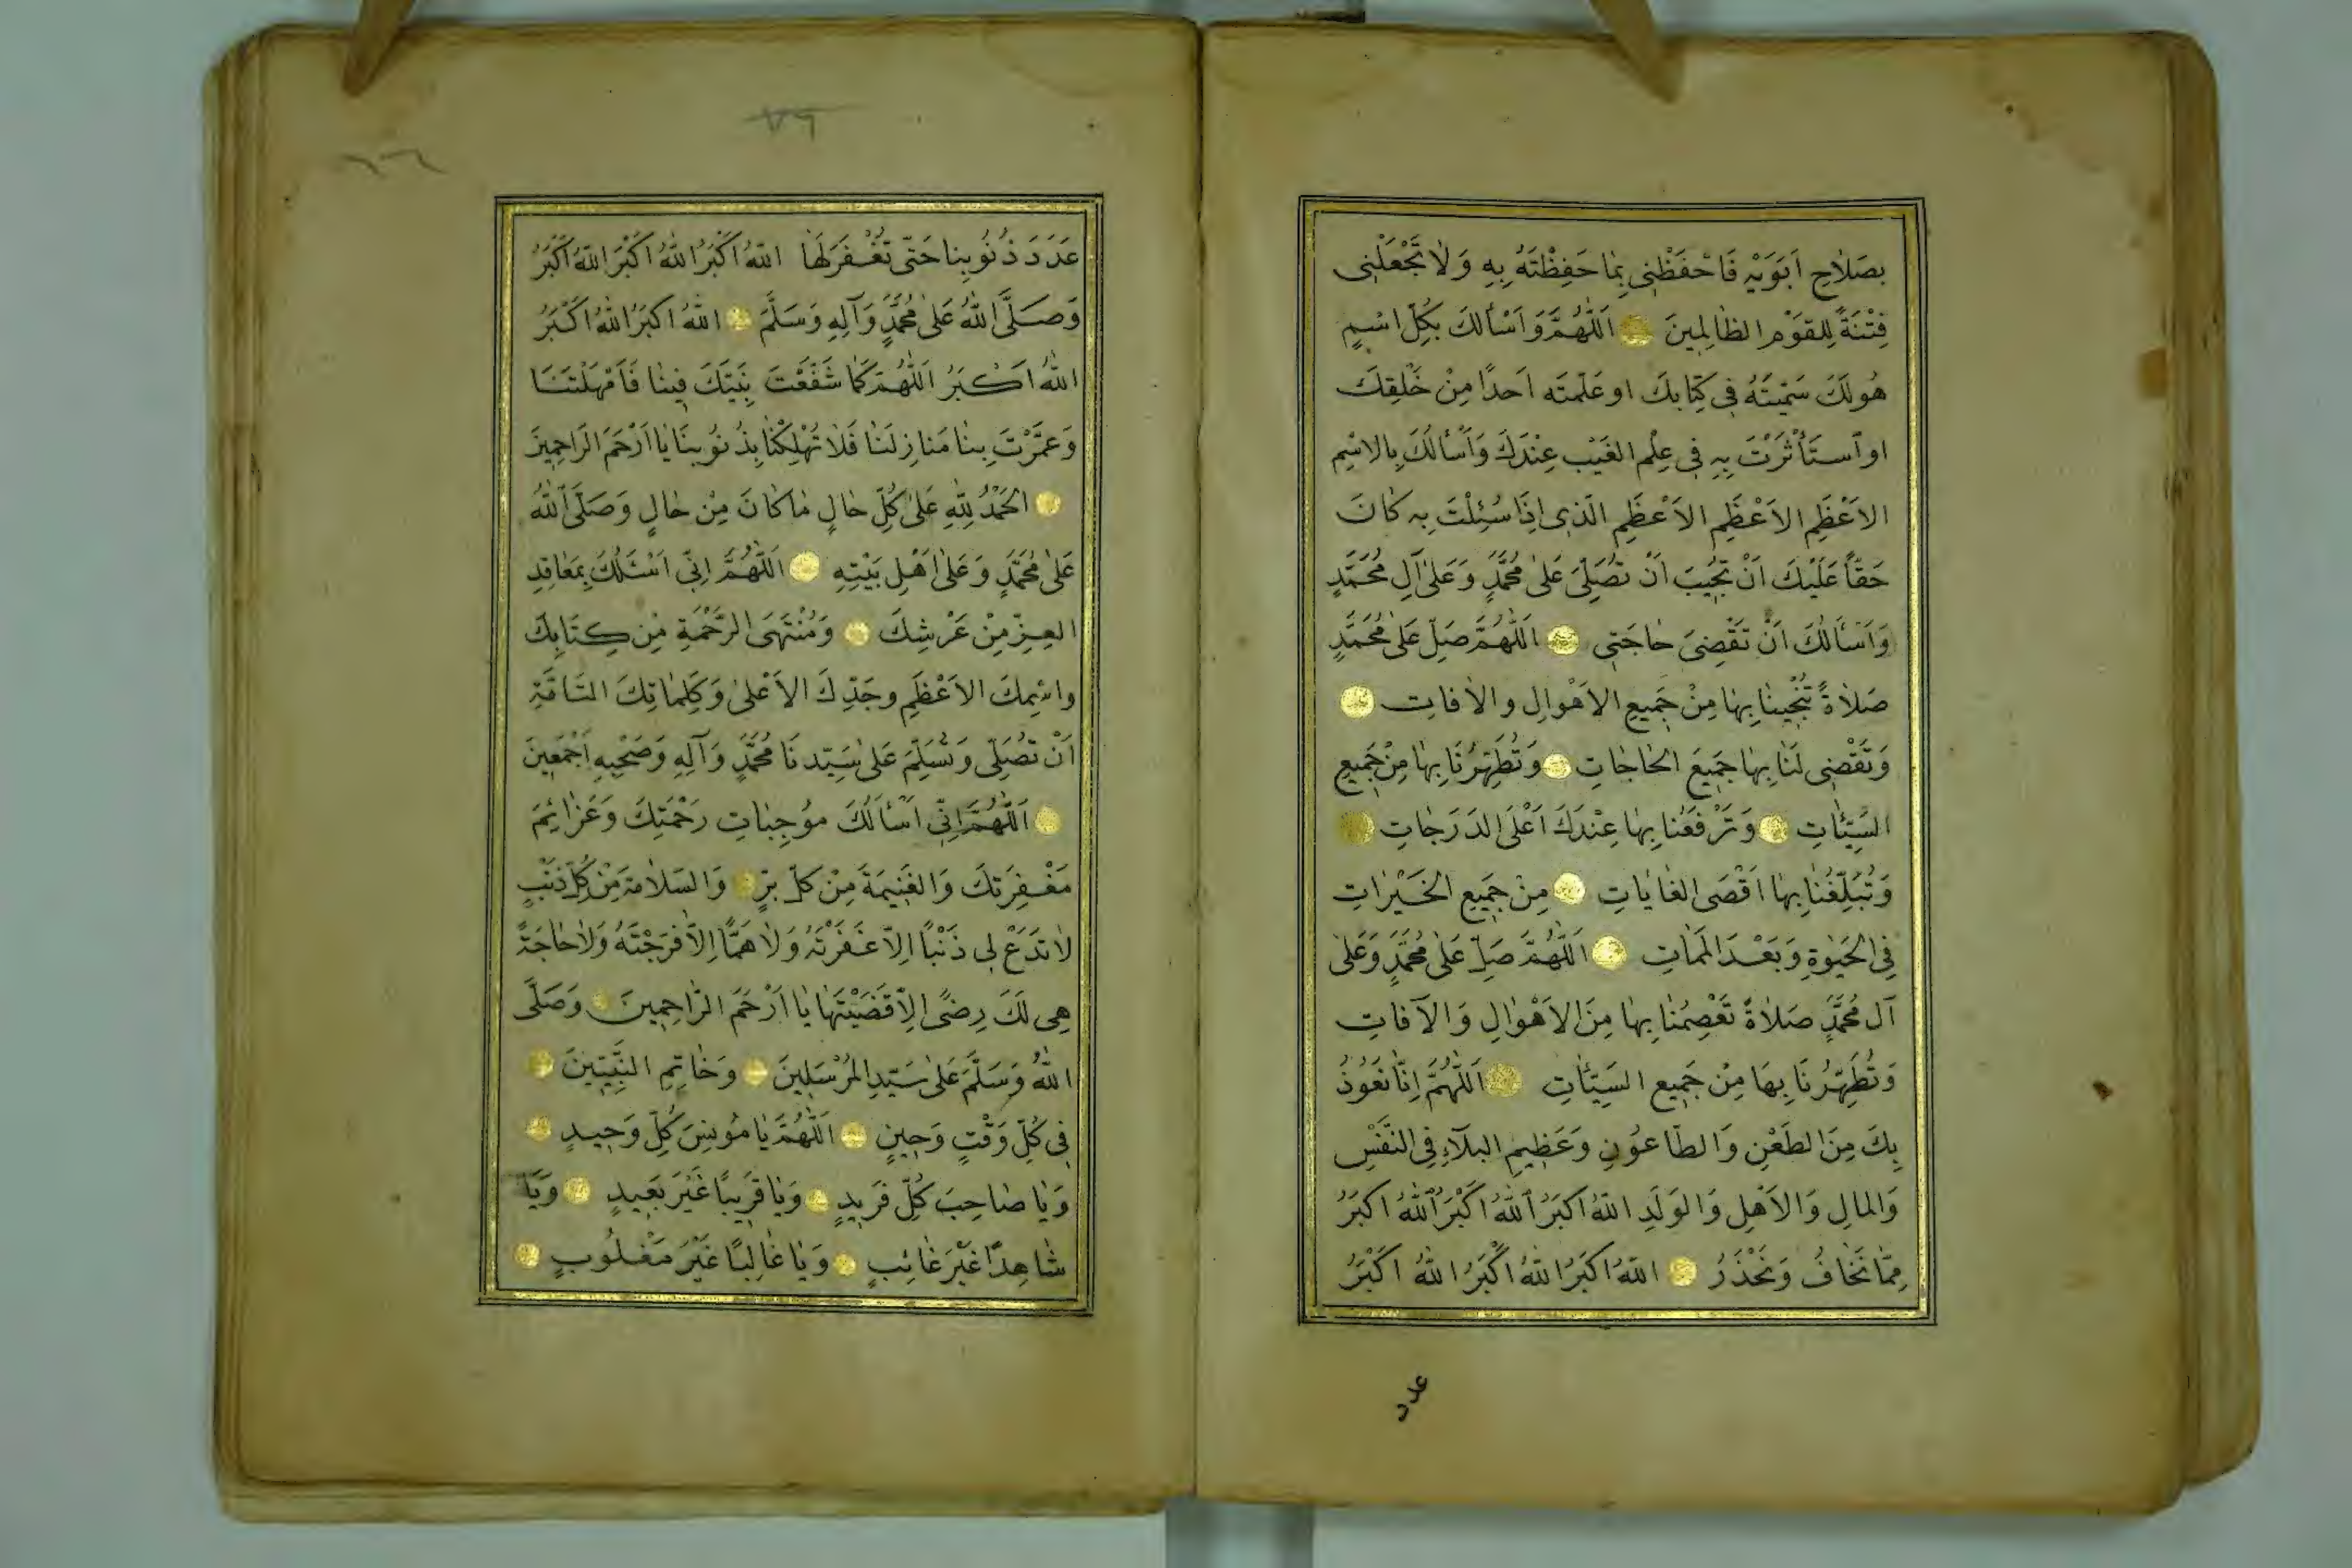 بِصَلَاحِ اَبَوَيْهِ فَاحْفَظْنِى بِمَا حَفِظْتَهُ بِهِ وَلَا تَجْعَلْنِى
فِتْنَةً لِلقَوْمِ الظَالِمِينَ اَللّٰهُمَّ وَاَسْأَلُكَ بِكُلِّ اسْمٍ
هُولَكَ سَمَّيْتَهُ فِى كِتَابِكَ او عَلَّمْتَه اَحدًا مِنْ خَلْقِكَ
اوِ اسْتَأْثَرْتَ بِهِ فِى عِلْمِ الغَيْبِ عِنْدَكَ وَاَسْأَلُكَ بِالاسْمِ
الاَعْظَمِ الاَعْظَمِ الاَعْظَمِ الَّذِى اِذَا سُئِلْتَ بِهِ كَانَ
حَقّاً عَلَيْكَ اَنْ تُجِيْبَ اَنْ تُصَلِّىَ عَلىٰ مُحَمَّدٍ وَعَلىٰ آلِ مُحَمَّدٍ
وَاَسْأَلُكَ اَنْ تَقْضِىَ حَاجَتِى اَللّٰهُمَّ صَلِّ عَلىٰ مُحَمَّدٍ
صَلَاةً تُنْجِينَا بِهَا مِنْ جَمِيعِ الاَهْوَالِ والاٰفَاتِ
وَتَقْضِى لَنَا بِهَا جَمِيْعَ الحَاجَاتِ وَتُطَهِّرُنَا بِهَا مِنْ جَمِيعِ
السَّيِّئَاتِ وَتَرْفَعُنَا بِهَا عِنْدَكَ اَعْلَى الدَرَجَاتِ
وَتُبَلِّغُنَا بِهَا اَقْصَى الغَايَاتِ مِنْ جَمِيعِ الخَيْرَاتِ
فِى الحَيٰوةِ وَبَعْدَ المَمَاتِ اَللّٰهُمَّ صَلِّ عَلىٰ مُحَمَّدٍ وَعَلىٰ
آلِ مُحَمَّدٍ صَلَاةً تَعْصِمُنَا بِهَا مِنَ الاَهْوَالِ وَالآفَاتِ
وَتُطَهِّرُنَا بِهَا مِنْ جَمِيعِ السَيِّئَاتِ اَللّٰهُمَّ اِنَّا نَعُوْذُ
بِكَ مِنَ الطَعْنِ وَالطَّاعُونِ وَعَظِيمِ البَلَآءِ فِى النَفْسِ
وَالمَالِ وَالاَهْلِ وَالوَلَدِ اللهُ اَكبَرُ اَللهُ اَكْبَرُ اَللهُ اَكبَرُ
مِمَّا نَخَافُ وَنَحْذَرُ اللهُ اَكبَرُ اللهُ اَكْبَرُ اللهُ اَكْبَرُ
عدد
٧٦
عَدَدَ ذُنُوبِنَا حَتّٰى تُغْفَرَ لَهَا اللهُ اَكْبَرُ اللهُ اَكْبَرُ اللهُ اَكْبَرُ
وَصَلَّى اللهُ عَلىٰ مُحَمَّدٍ وَآلِهِ وَسَلَّمَ اللهُ اَكبَرُ اللهُ اَكْبَرُ
اللهُ اَكْبَرُ اَللّٰهُمَّ كَمَا شَفَّعْتَ نَبِيَّكَ فِينَا فَاَمْهَلْتَنَا
وَعَمَّرْتَ بِنَا مَنَازِلَنَا فَلَا تُهْلِكْنَا بِذُنُوْبِنَا يَا اَرْحَمَ الرَاحِمِينَ
الحَمْدُ لِلّٰهِ عَلىٰ كُلِّ حَالٍ مَا كَانَ مِنْ حَالٍ وَصَلَّى اللهُ
عَلىٰ مُحَمَّدٍ وَعَلىٰ اَهْلِ بَيْتِهِ اَللّٰهُمَّ اِنِّى اَسْئَلُكَ بِمَعَاقِدِ
العِزِّ مِنْ عَرْشِكَ وَمُنْتَهَى الرَّحْمَةِ مِنْ كِتَابِكَ
واسْمِكَ الاَعْظَمِ وجَدِّكَ الاَعْلىٰ وَكَلِمَاتِكَ التَامَّةِ
اَنْ تُصَلِّىَ وَتُسَلِّمَ عَلىٰ سَيِّدِنَا مُحَمَّدٍ وَآلِهِ وَصَحْبِهِ اَجْمَعِينَ
اَللّٰهُمَّ اِنِّى اَسْأَلُكَ مُوْجِبَاتِ رَحْمَتِكَ وَعَزَائِمَ
مَغْفِرَتِكَ وَالغَنِيمَةَ مِنْ كلِّ بِرٍّ وَالسَلَامَةَ مِنْ كُلِّ ذَنْبٍ
لَا تَدَعْ لِى ذَنْبًا اِلَّا غَفَرْتَهُ وَلَا هَمًّا اِلَّا فَرَجْتَهُ وَلَا حَاجَةً
هِى لَكَ رِضًى اِلَّا قَضَيْتَهَا يَا اَرْحَمَ الرَّاحِمِينَ وَصَلَّى
اللهُ وَسَلَّمَ عَلىٰ سَيِّدِ المُرْسَلِينَ وَخَاتِمِ النَّبِيِّينَ
فِى كُلِّ وَقْتٍ وَحِينٍ اَللّٰهُمَّ يَا مُوْنِسَ كُلِّ وَحِيدٍ
وَيَا صَاحِبَ كُلِّ فَرِيدٍ وَيَا قَرِيبًا غَيْرَ بَعِيدٍ وَيَا
شَاهِدًا غَيْرَ غَائِبٍ وَيَا غَالِبًا غَيْرَ مَغْلُوبٍ